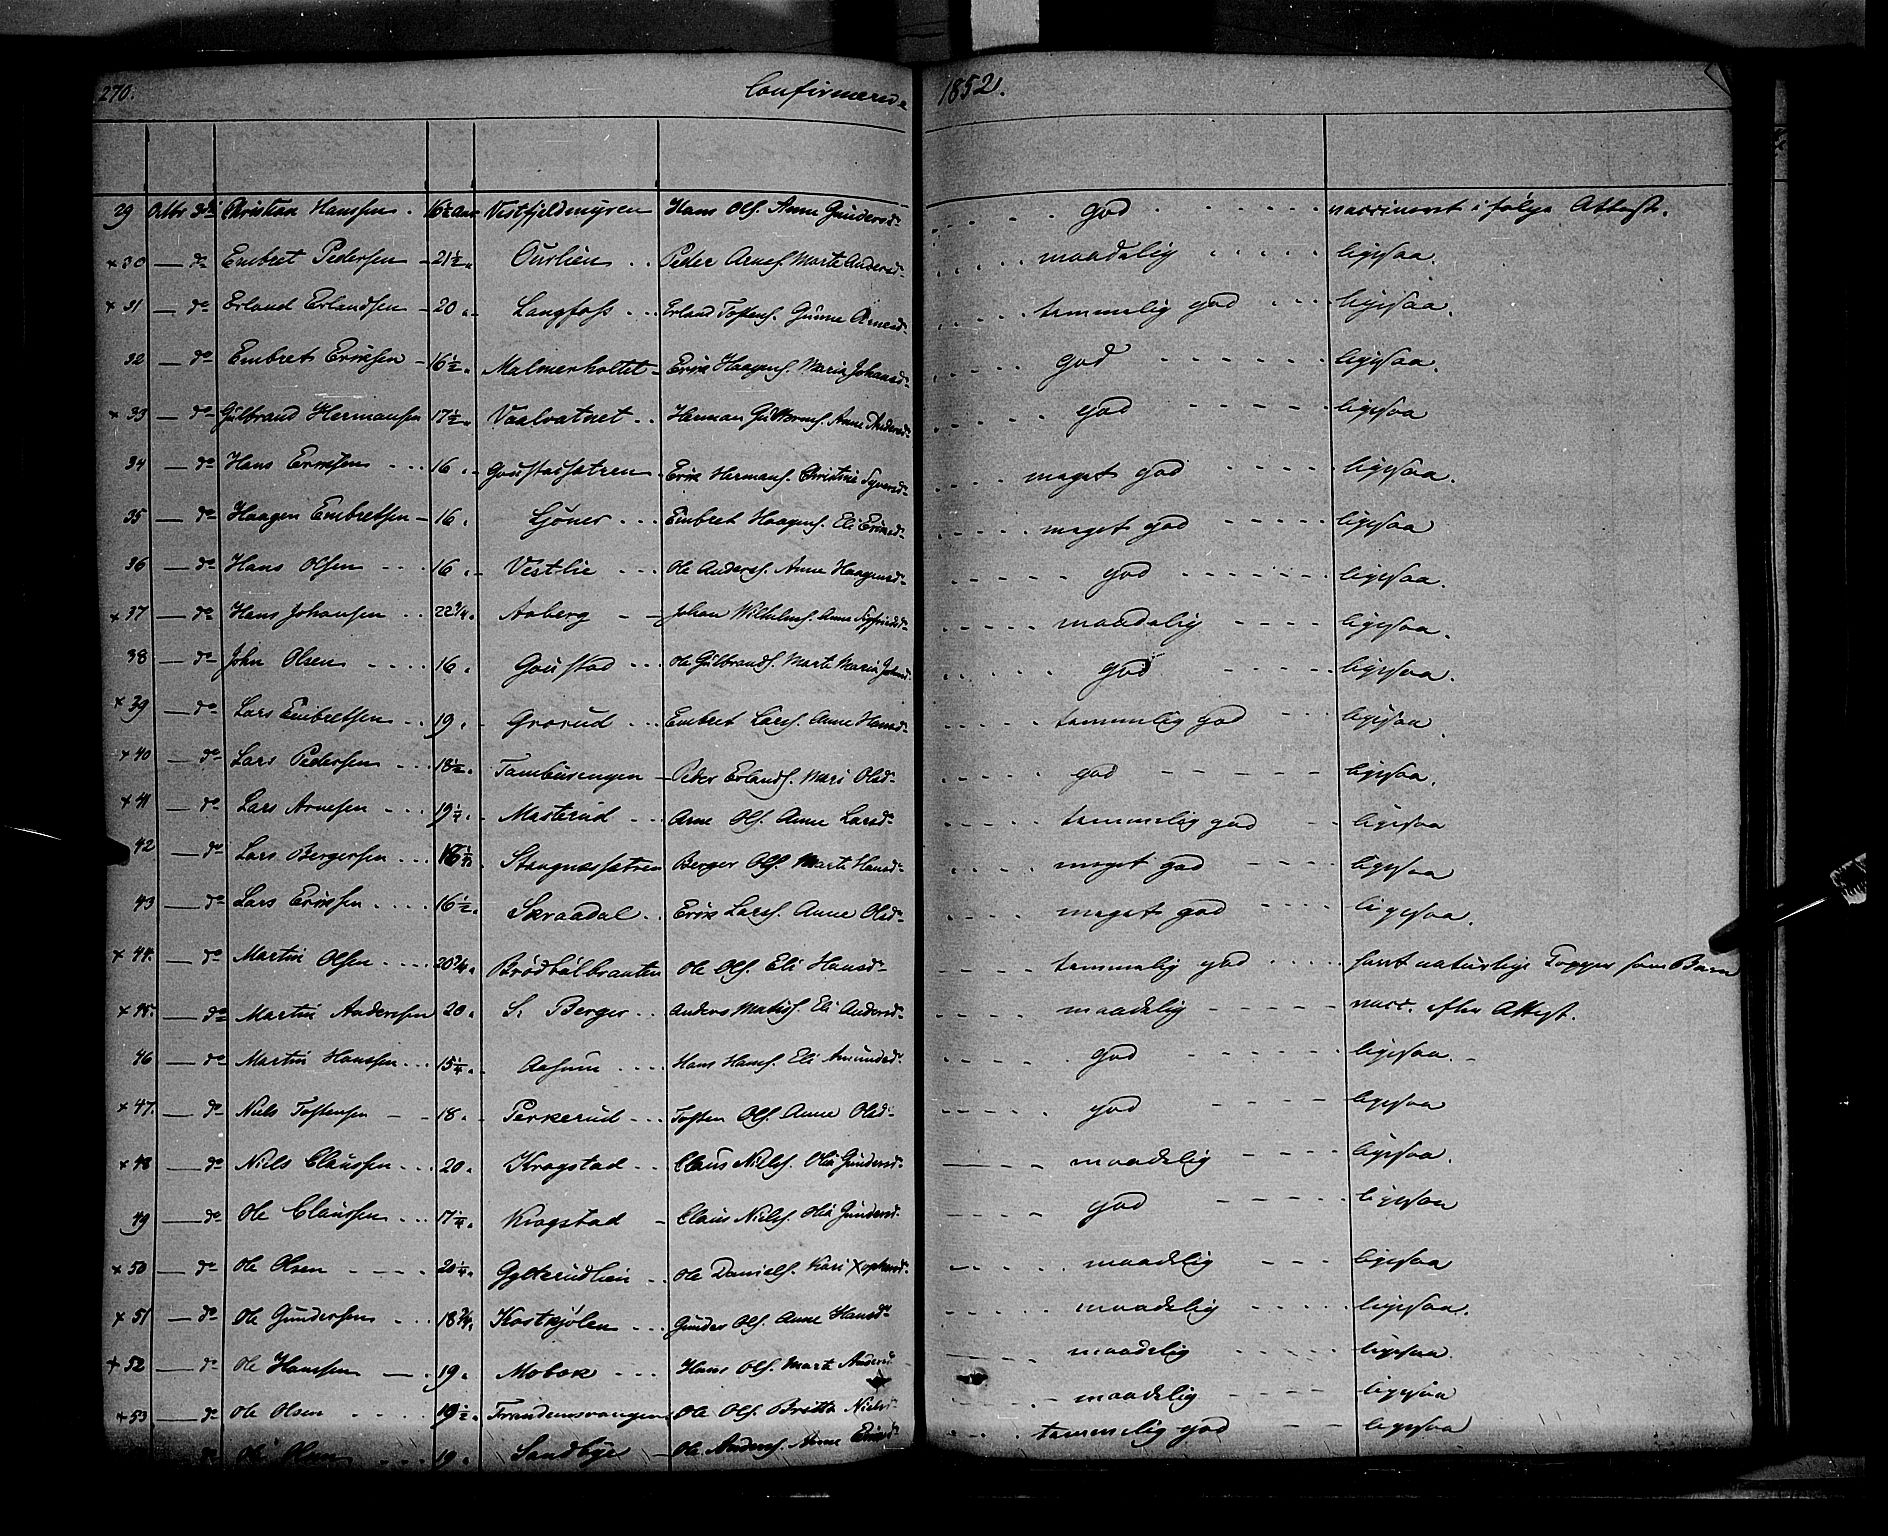 270. Confirmerede 1852.
29 Octbr 3die Christian Hanssen. 16½ Aar Vestfjeldmyren Hans Ols. Anne Gundersd. god vaccineret i følge Attest.
+30 — do Embret Pedersen 21½ Ourlien Peder Arnes. Marte Andersd. maadelig ligesaa.
+31 — do Erland Erlandsen 20 Langfoss Erland Tostens. Gunne Arnesd. temmelig god ligesaa.
32 — do Embret Eriksen 16½ Malmerholtet Erik Haagens. Maria Johansd. god ligesaa.
+33 — do Gulbrand Hermansen 17½ Vaalvatnet Herman Guttorms. Anne Andersd. god ligesaa
34 — do Hans Eriksen 16 Goustadsætren Erik Hermans. Christine Syversd. meget god ligesaa.
35 — do Haagen Embretsen 16 Sjöner Embret Haagens. Eli Eriksd. meget god ligesaa
36 — do Hans Olsen 16 Vestlie Ole Anders. Anne Haagensd. god ligesaa.
+37 — do Hans Johansen 22¾ Aaberg Johan Wilhelms. Anne Sigfriedsd. maadelig ligesaa.
38 — do John Olsen 16 Goustad Ole Gulbrands. Marte Maria Johnsd. god ligesaa.
+39 — do Lars Embretsen 19 Grorud Embret Lars. Anne Hansd. temmelig god ligesaa
+40 — do Lars Pedersen 18½ Tambursengen Peder Erlands. Mari Olsd. god ligesaa.
+41 — do Lars Arnesen 19¼ Masterud Arne Ols. Anne Larsd. temmelig god ligesaa
42 — do Lars Bergersen Stangnæssætren Berger Ols. Marte Hansd. meget god ligesaa
43 — do Lars Eriksen 16½ Skraadal Erik Lars. Anne Olsd. meget god ligesaa.
+44. — do Martin Olsen 20¾ Brödbölbraaten Ole Ols. Eli Hansd. temmelig god havt naturlige Kopper som Barn
+45. — do Martin Andersen 20 S. Berger Anders Matiss. Eli Andersd. maadelig vacc. efter Attest.
46 — do Martin Hanssen 15¼ Aasum Hans Hans. Eli Amundsd. god ligesaa.
+47. — do Niels Tostensen 18 Perkerud Tosten Ols. Anne Olsd. god ligesaa
+48 — do Niels Claussen 20 Krogstad Claus Niels. Olia Gundersd. maadelig ligesaa.
49 — do Ole Claussen 17¼ Krogstad Claus Niels. Olia Gundersd. god ligesaa
+50 — do Ole Olsen 20¼ Gylterudlien Ole Daniels. Kari Xophersd. maadelig ligesaa
+51 — do Ole Gundersen 18¾ Kostkjølen Gunder Ols. Anne Hansd. maadelig ligesaa.
+52 — do Ole Hanssen 19 Mobæk Hans Ols. Marte Andersd. maadelig ligesaa.
+53 — do Ole Olsen 19½ Ole Ols. Britta Nielsd. maadelig ligesaa
do Ole Olsen 19 Sandbye Ole Anders. Anne Eriksd. temmelig god ligesaa